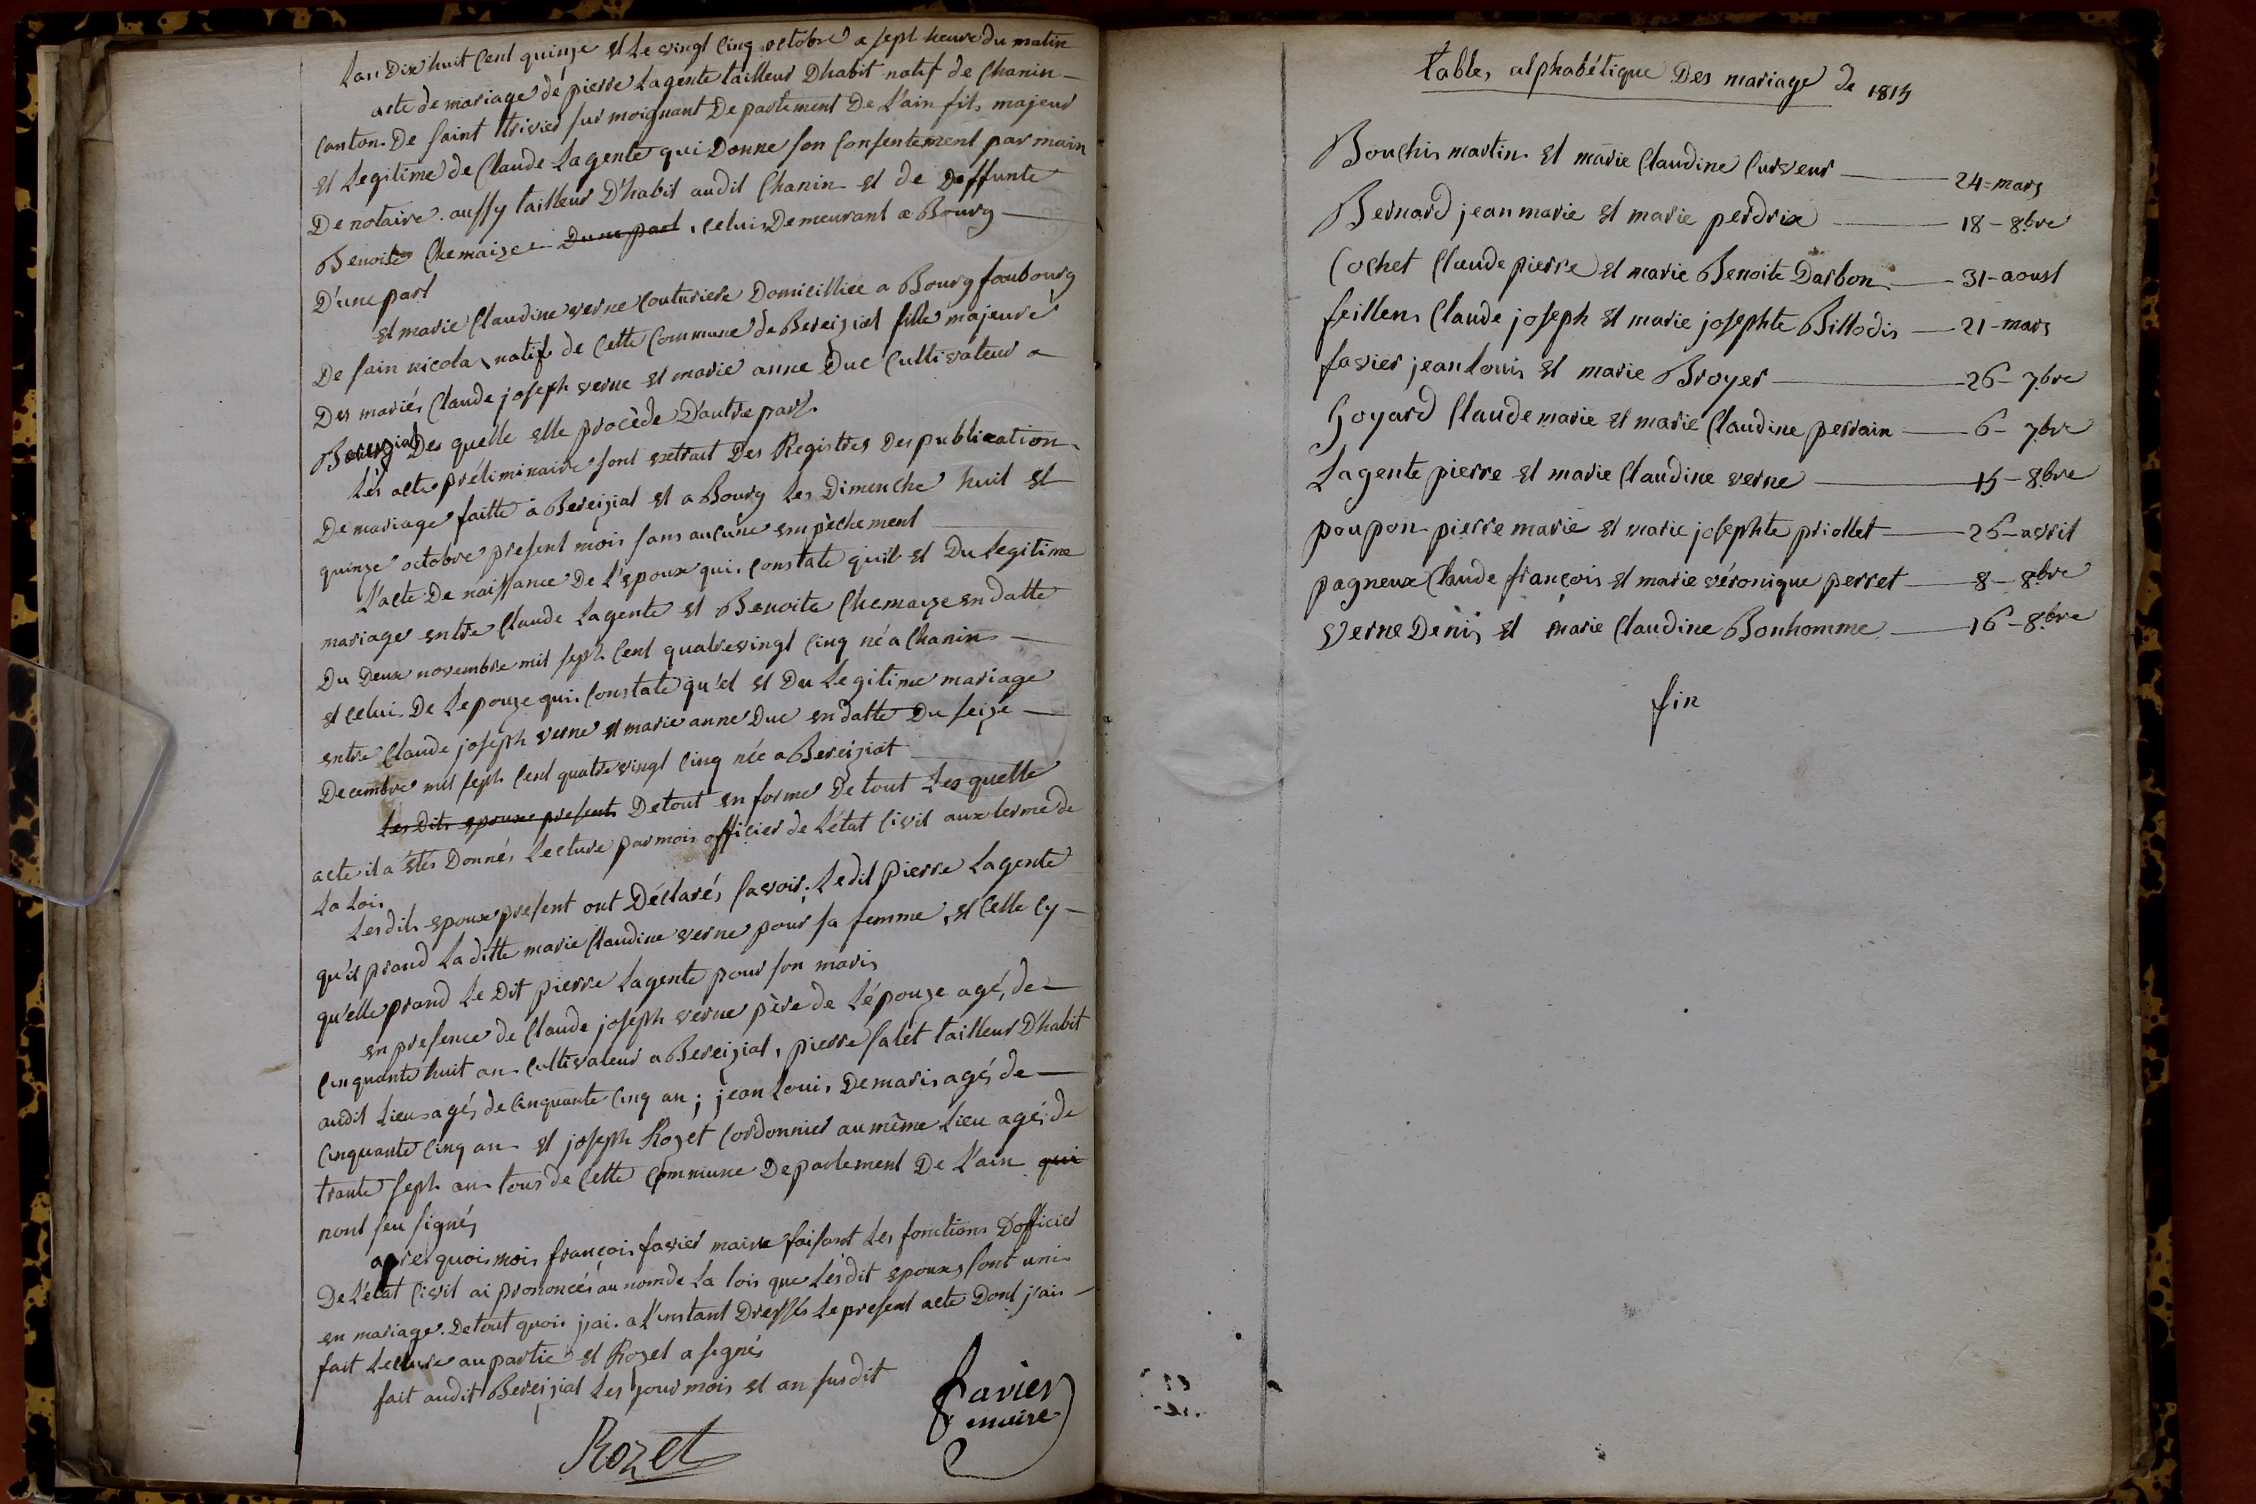 Lan Dix huit Cent quinze et le vingt cinq octobre a sept heure du matin
acte de mariage de pierre Lagente tailleur Dhabit natif de Chanin
canton De saint trivier sur moignant Departement De L'ain fils majeur
et Legitime de Claude Lagente qui Donne son Consentement par main
De notaire. aussy tailleur D'habit audit Chanin et de Deffunte
Benoite Chemaize Dune part, celui Demeurant a Bourg
D'une part
et marie Claudine verne Couturiere Domicilliée a Bourg faubourg
De sain nicola, natif de Cette Commune de Bereiziat fille majeure
Des mariés Claude joseph verne et marie anne Duc Cultivateur a
Bereiziat Des quelle elle procède D'autre part.
Lés acte préliminaire sont extrait Des Registres Des publication
De mariage faitte a Bereiziat et a Bourg Les Dimenche huit et
quinze octobre present mois sans aucune empèchement
L'acte De naissance De L'epoux qui constate quil et Du Legitime
mariage entre Claude Lagente et Benoite Chemaize en datte
Du Deux novembre mil seph Cent quatrevingt Cinq né a Chanin
et celui De Lepouze qui Constate qu'el et Du Legitime mariage
entre Claude joseph verne et marie anne Duc en datte Du seize
Decembre mil seph Cent quatrevingt Cinq née a Bereiziat
Les Dits epoux present Detout en forme De tout Les quelle
acte il a étés Donnés Lecture par mois officier de L'etat Civil aux terme de
La Loi
Lesdits epoux present ont Déclarés savoir. Ledit Pierre Lagente
qu'il prand La ditte marie Claudine verne pour sa femme, et Celle Cy
qu'elle prand Le Dit pierre Lagente pour son maris
en presence de Claude joseph verne père de L'épouze agé, de
Cinquante huit an Cultivateur a Bereiziat, pierre salet tailleur D'habit
audit Lieu agés de Cinquante Cinq an; jean Louis Demaris agés de
Cinquante Cinq an et joseph Rozet Cordonnier au même Lieu agés de
trante seph an tous de Cette Commune Departement De L'ain qui
nont seu signés
apres quois mois françois favier maire faisant Les fonctions D'officier
De L'état Civil ai prononcés au nom de La lois que Lesdit epoux, sont unis
en mariage. De tout quois jai a L'instant Dressés Le present acte Dont j'ais
fait Lecture au partie et Rozet a signés
fait audit Bereiziat Les jour mois et an susdit
Rozet
favier
maire
table, alphabétique Des mariage de 1815
Bouchis martin et marie Claudine Curveur 24 = mars
Bernard jean marie et marie perdrix 18 - 8bre
Cochet Claude pierre et marie Benoite Darbon 31 - aoust
feillens Claude joseph et marie josephte Billodis 21 - mars
favier jean Louis et marie Broyer 26 - 7bre
Goyard Claude marie et marie Claudine perrain 6 - 7bre
Lagente pierre et marie Claudine verne 15 - 8bre
poupon pierre marie et marie josephte priollet 26 - avril
pagneux Claude françois et marie véronique perret 8 - 8bre
Verne Denis et marie Claudine Bonhomme 16 - 8bre
fin